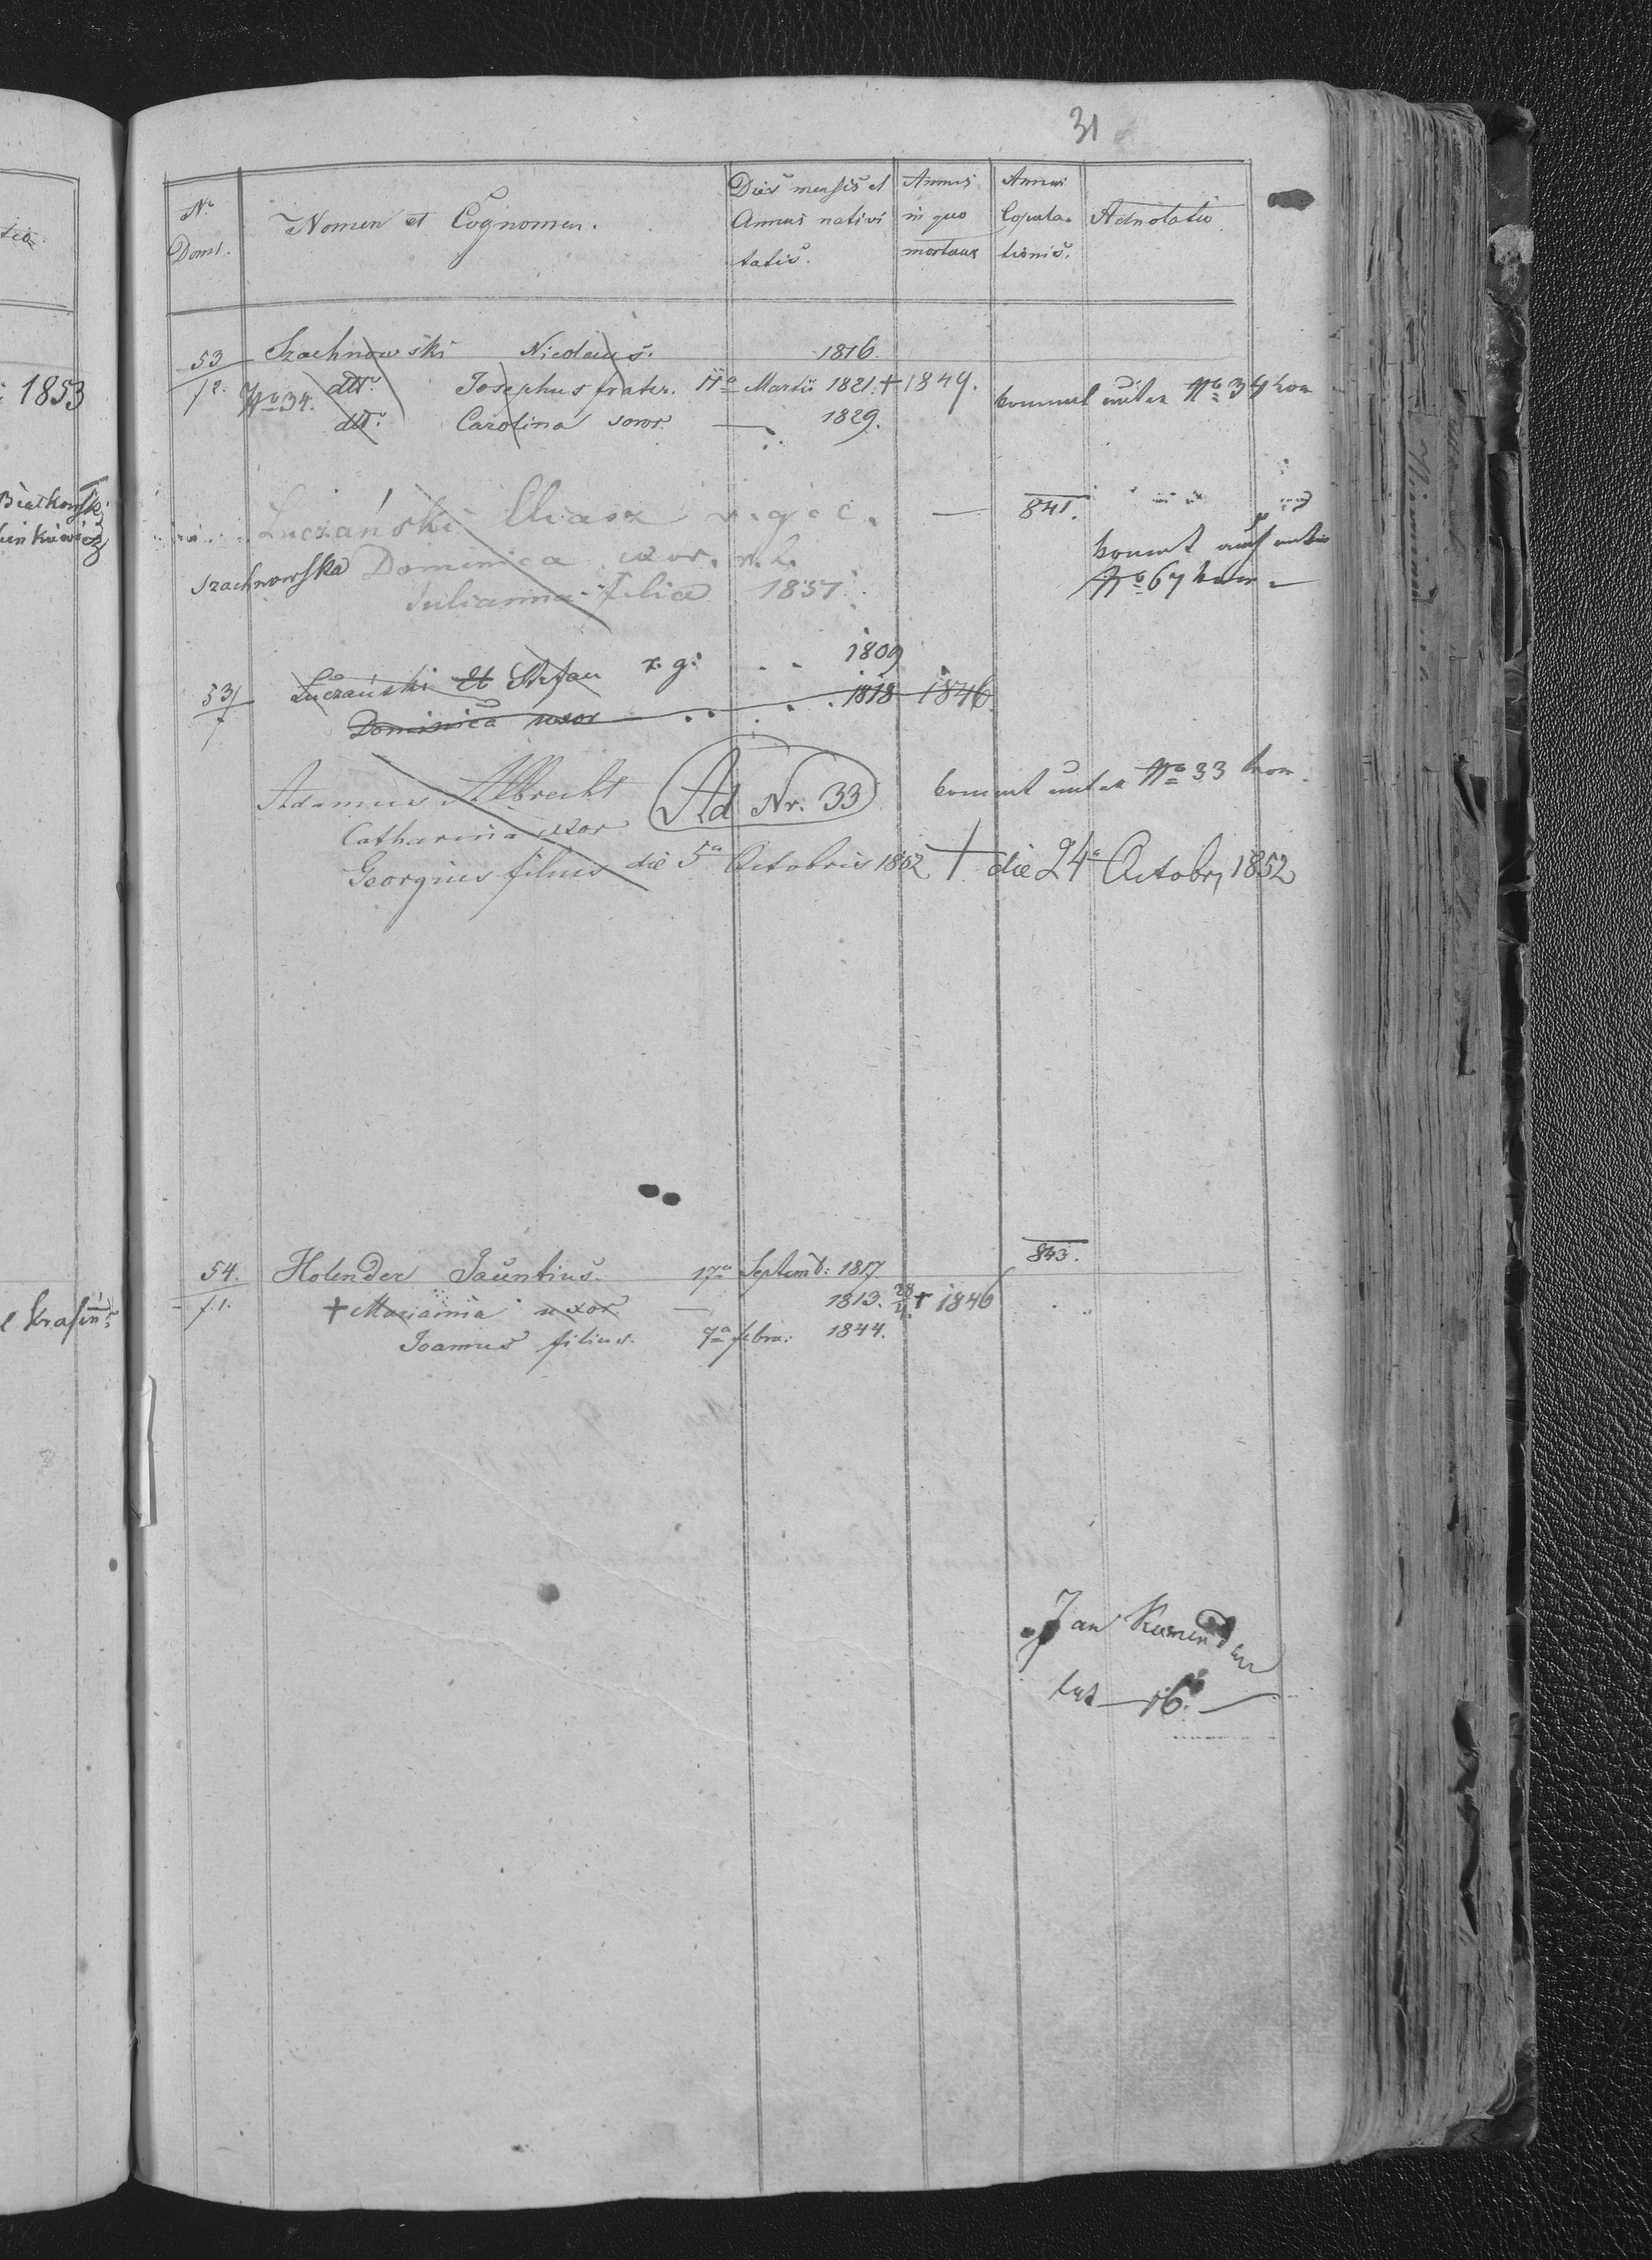 31
No Domi.
Nomen et Cognomen.
Dies mensis et Annus nativitatis.
Annus in quo mortuus
Annus Copulationis.
Adnotatio
53 Szachnowski Nicolaus. 1816.
/2. No 34. dtt. Josephus frater. 11a Martii 1821. + 1849. kommt unter No 34 vor
dtt. Carolina soror — 1829.
Luczański Eliasz r. g. c. — 841.
Szachnowska Dominica uxor. r. l. kommt auch unter
Julianna filia 1851. No 67 vor
53/ Luczański Stefan r. g. 1809
Dominica uxor 1818 1846
Adamus Albrecht Ad Nr. 33 kommt unter No 33 vor.
Catharina uxor
Georgius filius die 5a Octobris 1852 + die 24a Octobr, 1852
54. Holender 17a Septemb: 1817 843.
/1. + Marianna uxor — 1813. + 1846
Joannes filius. 9a febru: 1844.
Jan
lat 16.
1853